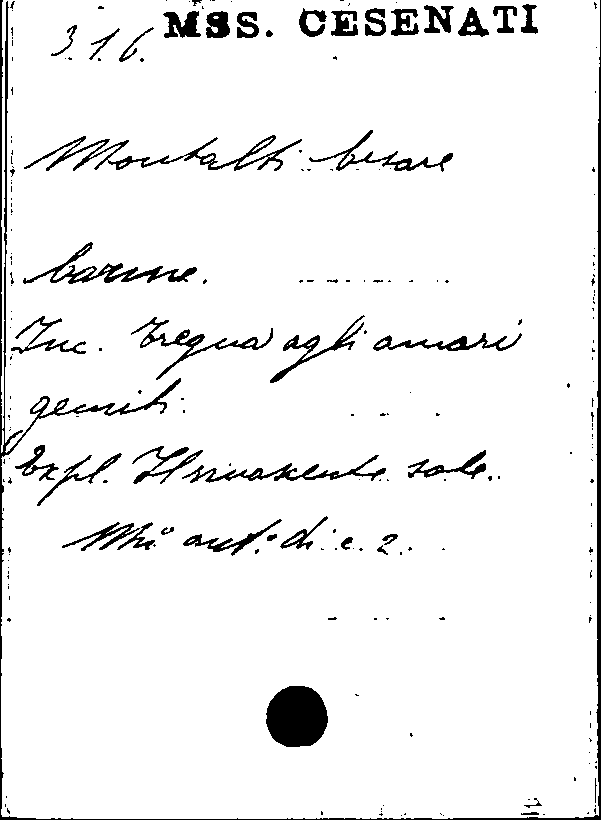 MSS. CESENATI
3.1.6.
Montalti Cesare
Carme.
Inc. Tregua agli amari
gemiti.
Expl. Il rinascente sole.
Mss. aut.º di c. 2.